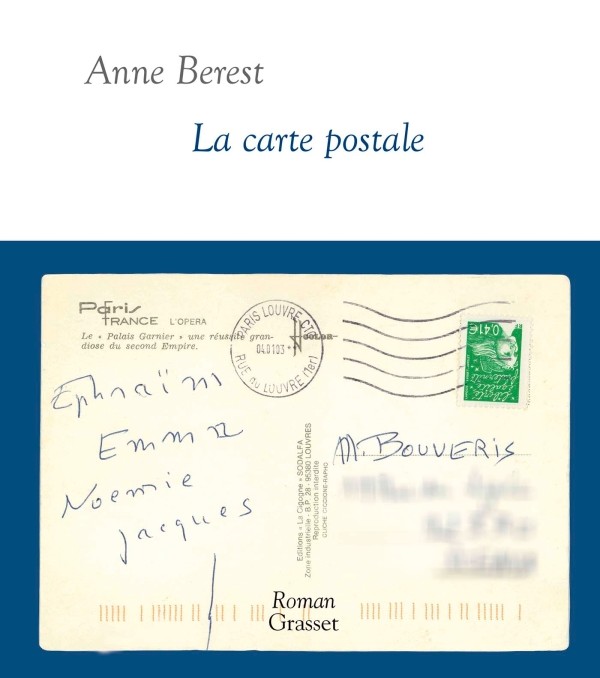 Anne Berest
La carte postale
Paris
FRANCE L'OPERA
Le « Palais Garnier » une réussite gran-
diose du second Empire.
PARIS LOUVRE CTC
04.0103
RUE du LOUVRE (1er)
0,41€
Ephraïm
Emma
Noemie
Jacques
M. BOUVERIS
Editions « La Cigogne » SODALFA
Zone industrielle - B.P. 28 - 95380 LOUVRES
Reproduction interdite
CLICHE CICCIONE-RAPHO
Roman
Grasset